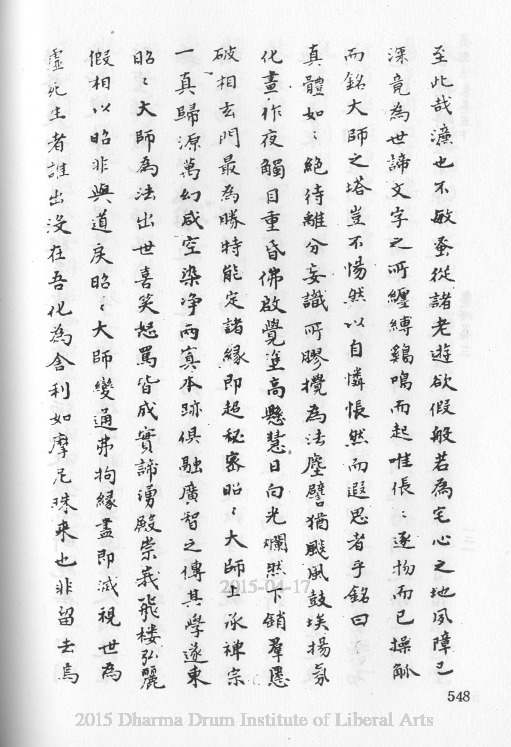 至此哉濂也不敏蚤從諸老遊欲假般若為宅心之地夙障已
深竟為世諦文字之所纏縛鷄鳴而起唯倀〻逐物而已操觚
而銘大師之塔豈不惕然以自憐悵然而遐思者乎銘曰
真體如〻絕待離分妄識所膠攪為法塵譬猶颷風鼓埃揚氛
化晝作夜觸目重昏佛啟覺塗高懸慧日白光爛然下銷羣慝
破相玄門最為勝特能定諸緣即超秘密昭〻大師上承禪宗
一真歸源萬幻咸空染净兩寘本跡俱融廣智之傳其學遂東
昭〻大師為法出世喜笑怒罵皆成實諦湧殿崇峩飛楼弘麗
假相以昭非與道戾昭〻大師變通弗拘緣盡即滅視世為
虛死生者誰出没在吾化為舍利如摩尼珠来也非留去烏
548
2015-04-17
2015 Dharma Drum Institute of Liberal Arts